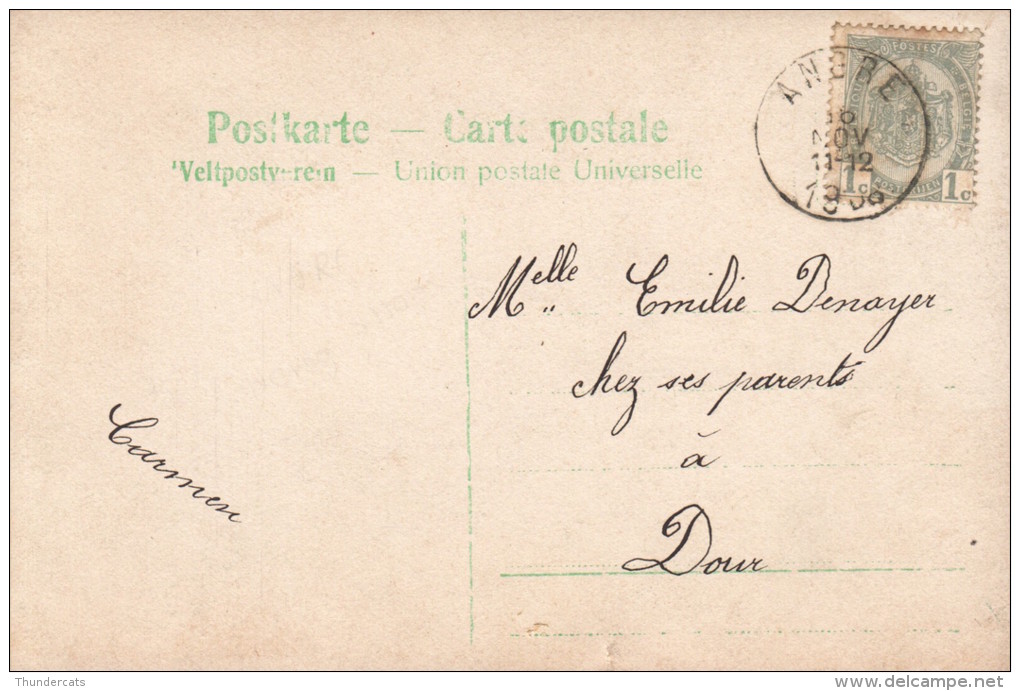 Postkarte — Carte postale
Weltpostverein — Union postale Universelle
ANGRE
NOV
11-12
POSTES
1c POSTERIJEN 1c
Melle Emilie Denayer
chez ses parents
à
Dour
Carmen
Thundercats
delcampe.net